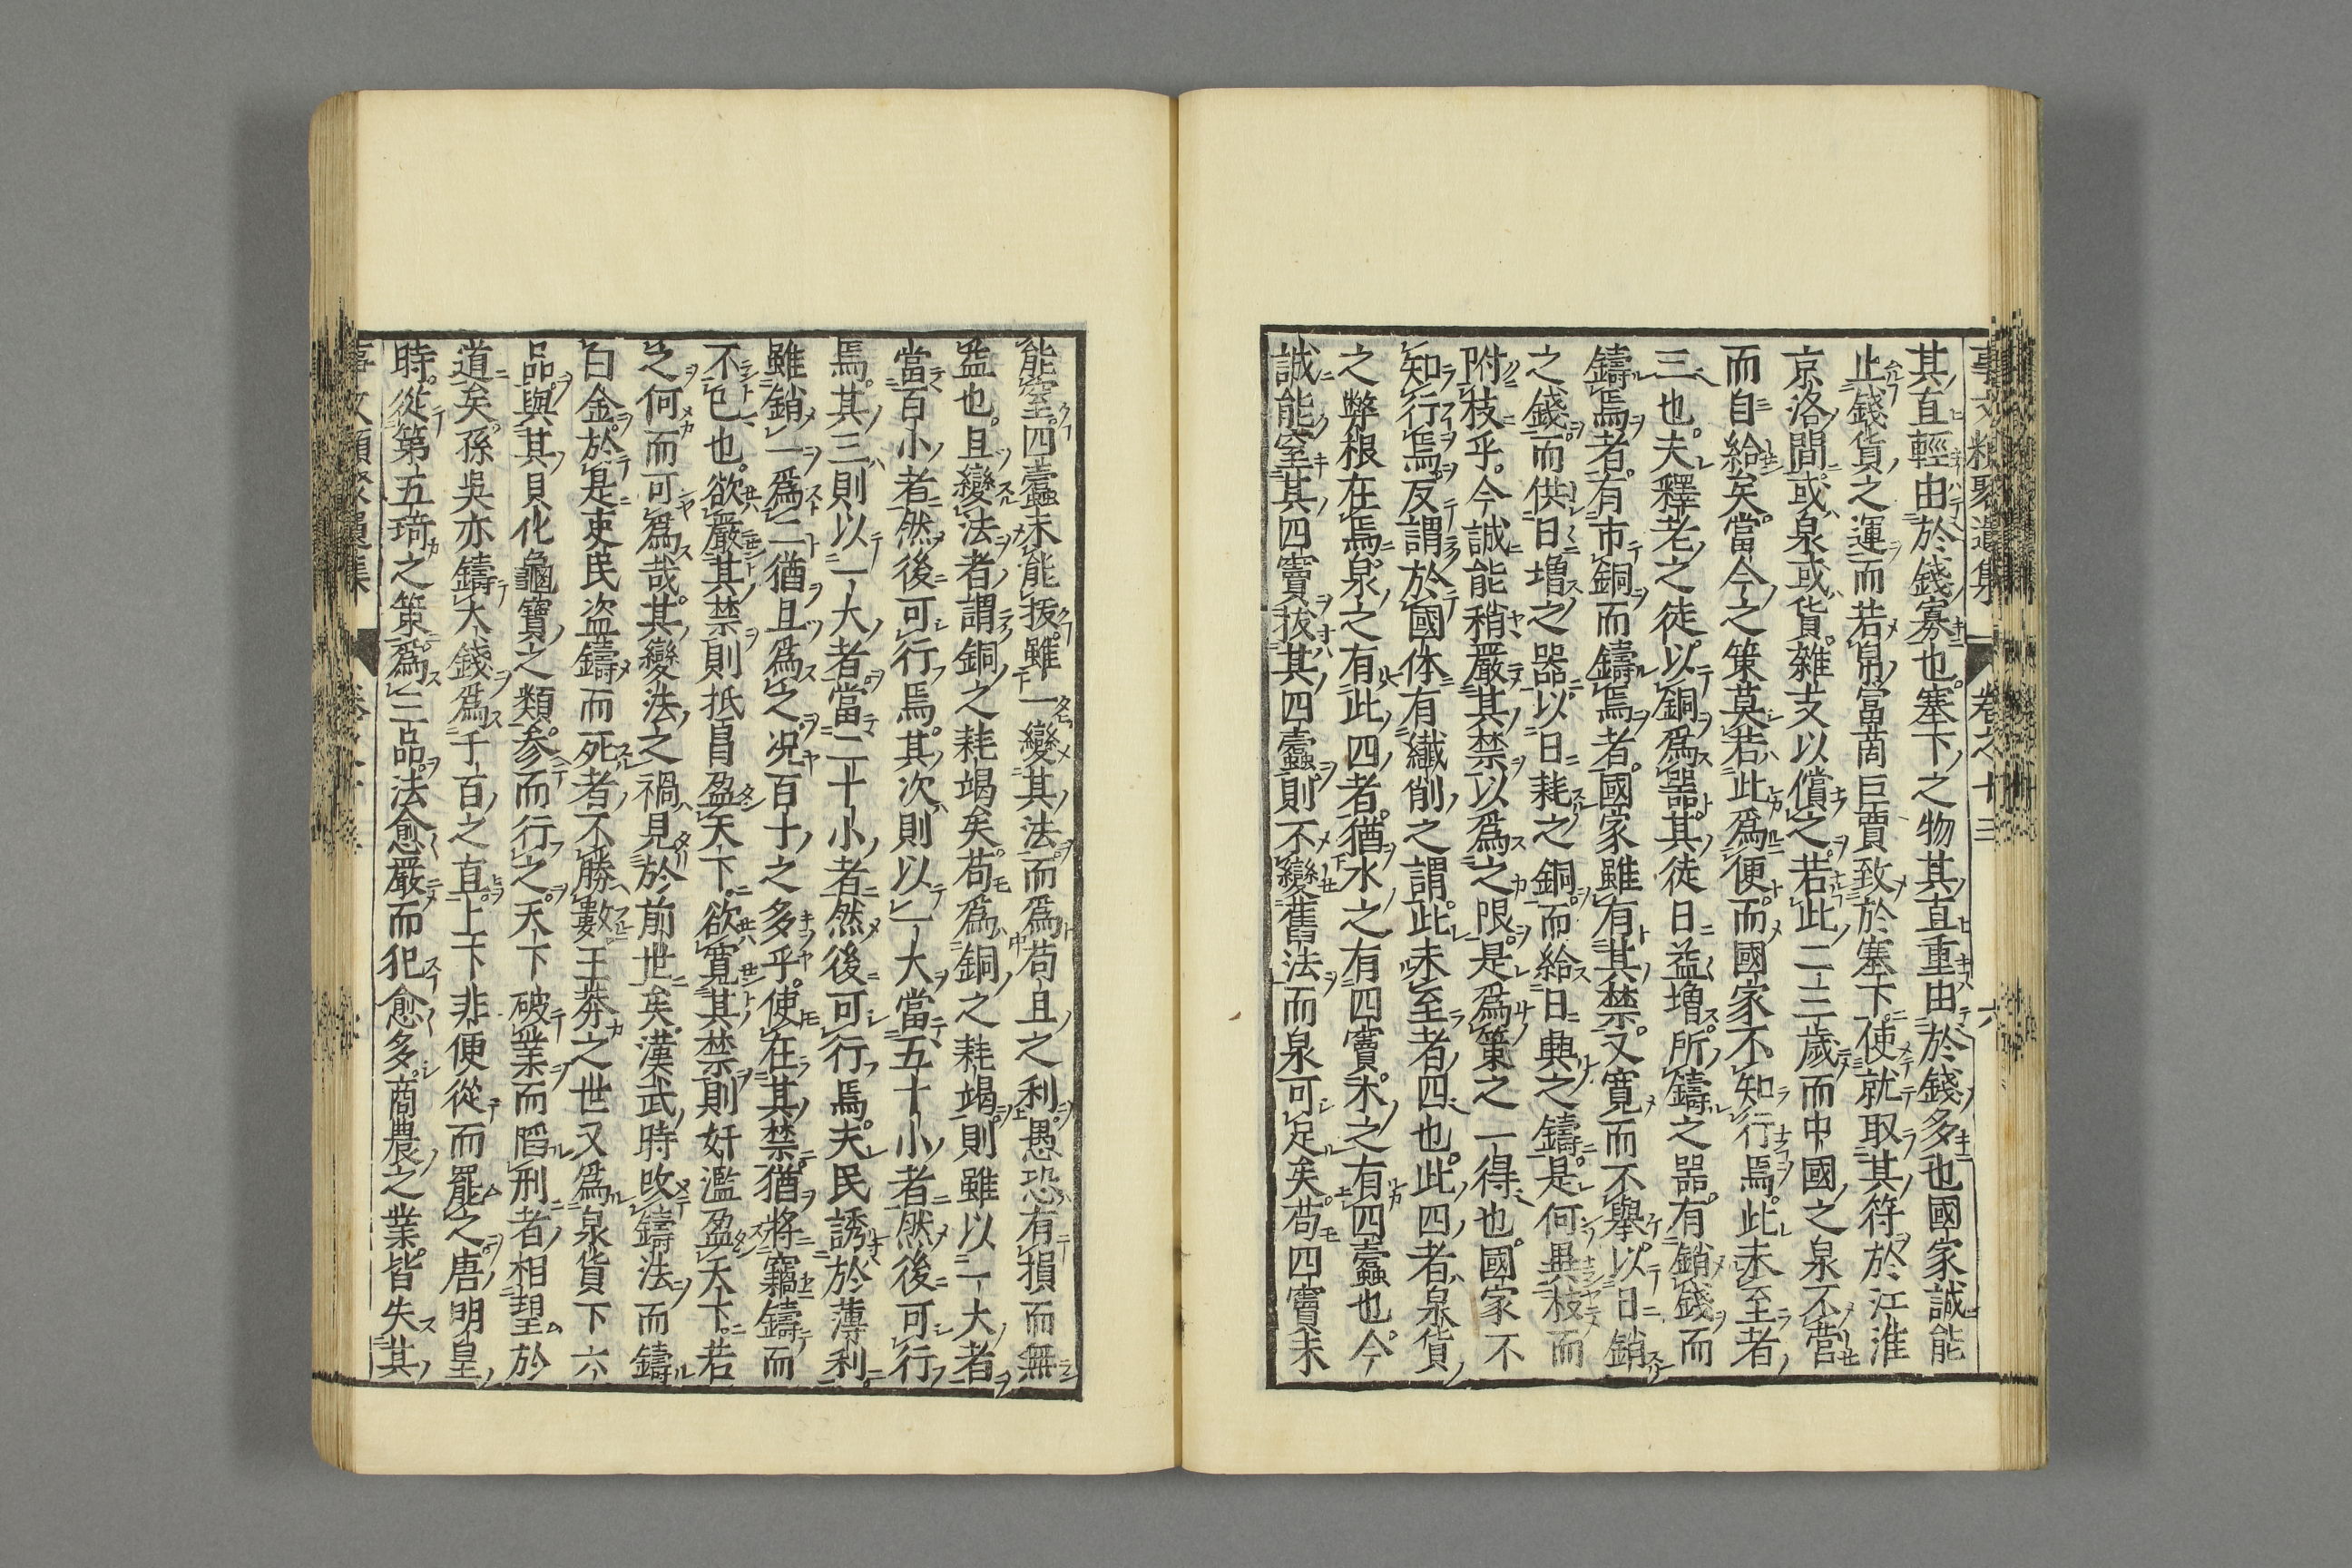 事文類聚遺集 卷之十三 六
其直輕由於錢寡也塞下之物其直重由於錢多也國家誠能
止錢貨之運而若帛富商巨賈致於塞下使就取其符於江淮
京洛間或泉或貨雜支以償之若此二三歲而中國之泉不營
而自給矣當今之策莫若此爲便而國家不知行焉此未至者
三也夫釋老之徒以銅爲器其徒日益增所鑄之器有銷錢而
鑄焉者有市銅而鑄焉者國家雖有其禁又寬而不擧以日銷
之錢而供日增之器以日耗之銅而給日興之鑄是何異枝而
附枝乎今誠能稍嚴其禁以爲之限是爲策之一得也國家不
知行焉反謂於國体有纎削之謂此未至者四也此四者泉貨
之弊根在焉泉之有此四者猶水之有四竇木之有四蠧也今
誠能窒其四竇拔其四蠧則不變舊法而泉可足矣苟四竇未
能窒四蠧未能拔雖一變其法而爲苟且之利愚恐有損而無
益也且變法者謂銅之耗竭矣苟爲銅之耗竭則雖以一大者
當百小者然後可行焉其次則以一大當五十小者然後可行
焉其三則以一大者當二十小者然後可行焉夫民誘於薄利
雖銷一爲二猶且爲之况百十之多乎使在其禁猶將竊鑄而
不已也欲嚴其禁則抵冒盈天下欲寬其禁則奸濫盈天下若
之何而可爲哉其變法之禍見於前世矣漢武時改鑄法而鑄
白金於是吏民盗鑄而死者不勝數王莽之世又爲泉貨下六
品與其貝化龜寶之類参而行之天下破業而䧟刑者相望於
道矣孫吳亦鑄大錢爲千百之直上下非便從而罷之唐明皇
時從第五琦之策爲三品法愈嚴而犯愈多商農之業皆失其